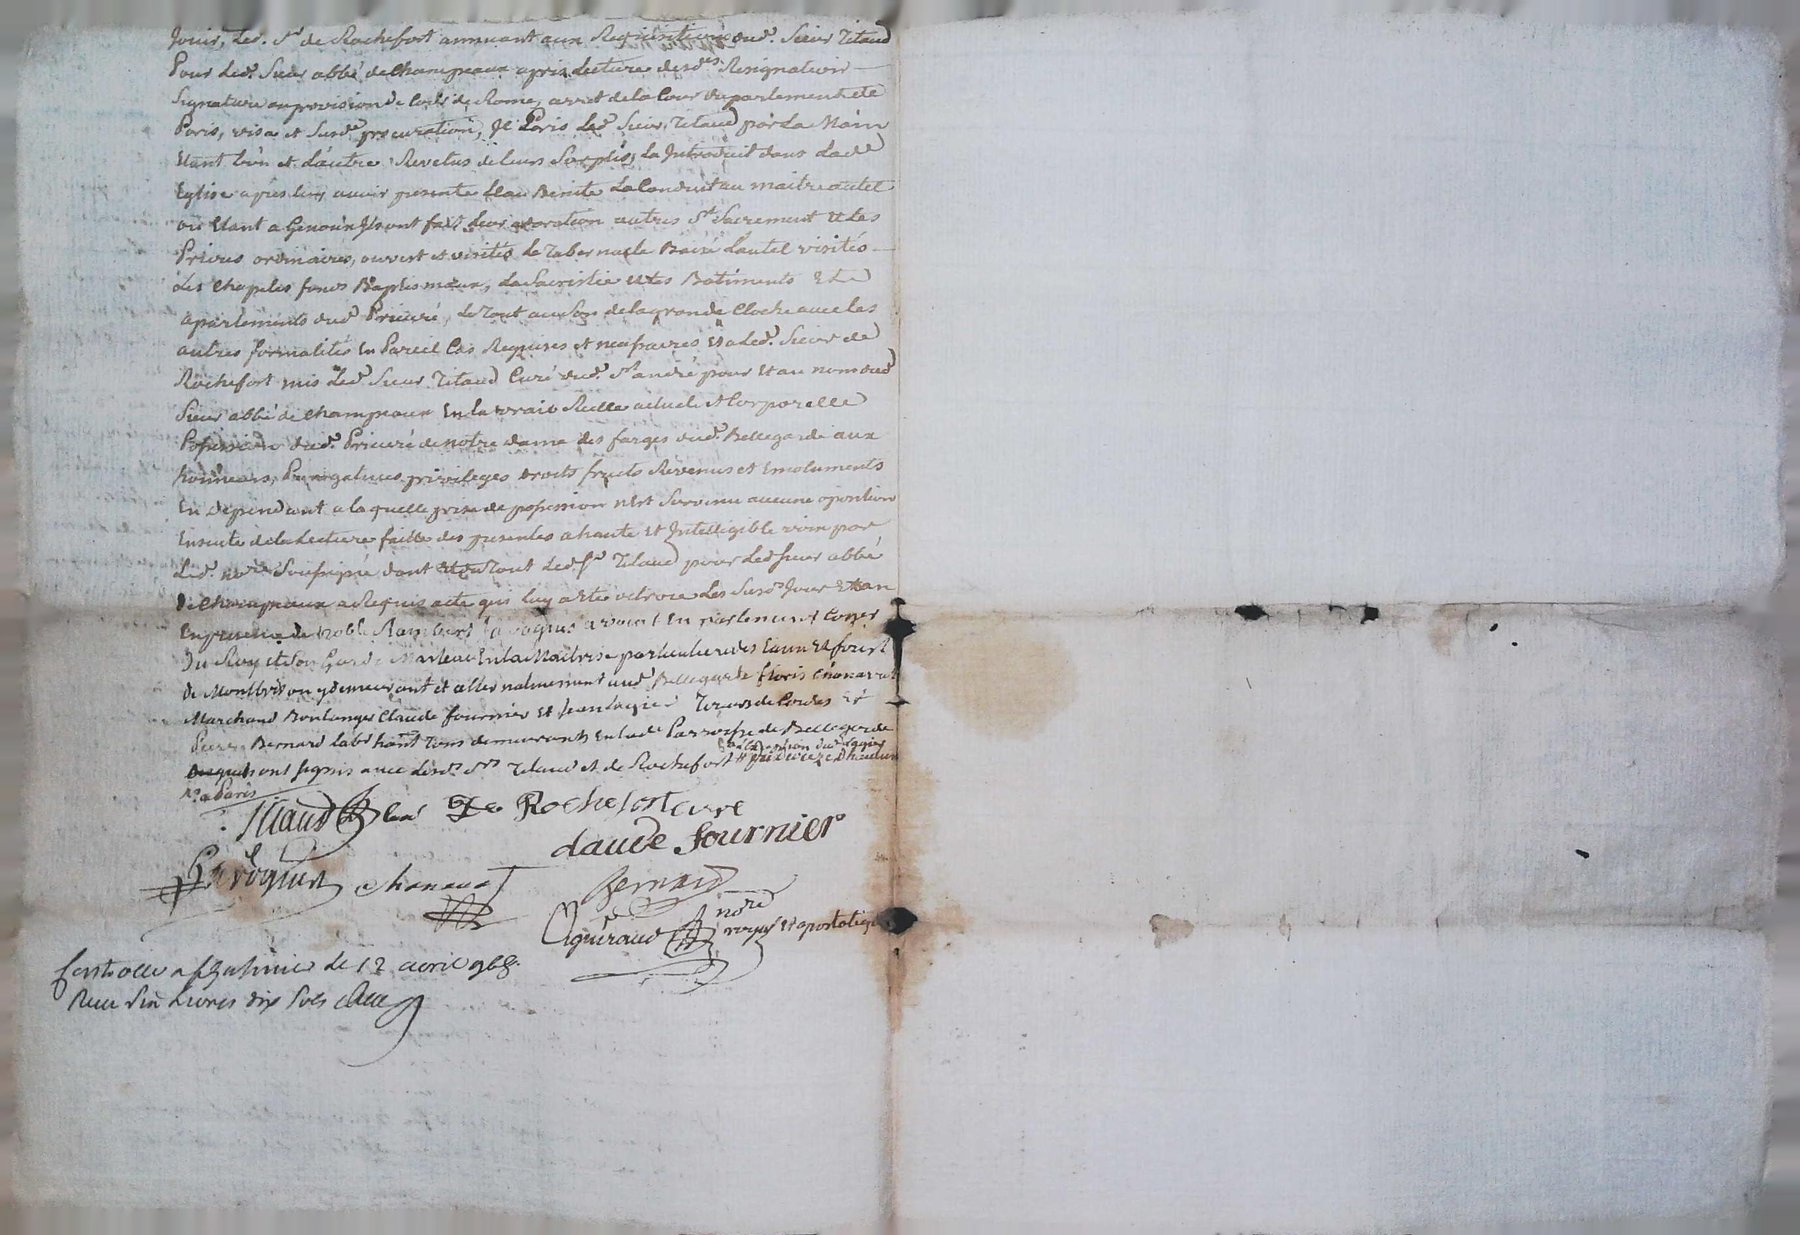 Jouir, Led. Sr de Rochefort annuant aux Requisitions dud. Sieur Titaud
Pour Led. Sieur abbé de Champeaux apres Lecture desdes Resignation
Signature ou provision de Cour de Rome, arret de la Cour du parlement de
Paris, visa et Susde procuration, Il Pris Led Sieur Titaud par La Main
Etant L'un et L'autre Revetus de leurs Surplis, La Introduit dans Lade
Eglise apres luy avoir presenté L'eau Benite La Conduit au maitre autel
ou Etant a Genoux Ils ont fait Leur adoration au tres St Sacrement et Les
Prieres ordinaires, ouvert et visités Le Tabernacle Baisé L'autel visités
Les Chapeles fonds Baptismaux, La Sacristie et Les Batiments et
apartements dud Prieuré, Le Tout au Son de la grande Cloche avec les
autres formalités En Pareil Cas Requises et necessaires Et a Led. Sieur de
Rochefort mis Led Sieur Titaud Curé dud. St andré pour Et au nom dud
Sieur abbé de Champeaux En la vraie Reelle actuele et Corporelle
Possession dud. Prieuré de notre dame des farges dud. Bellegarde aux
honneurs, Prerogatives privileges droits fruits Revenus et Emoluments
En dependant a laquelle prise de possession n'Est Survenu aucune oposition
Ensuite de la Lecture faitte des presentes a haute et Intelligible voix par
Led. nore Soussigné dont du Tout Led Sr Titaud pour Led sieur abbé
de Champeaux a Requis acte qui luy a Eté octroié Les Susd Jour Et an
En presence de noble Rambert avocat En parlement Coner
Du Roy et Son Garde Marteau En la Maitrise particuliere des Eaux et forest
de Montbrison y demeurant et alternativement aud Bellegarde floris Chanavat
Marchand Boulanger Claude fournier et Et
Pierre Bernard tous demeurants En lade Parroisse de Bellegarde
ont signés avec Lesd. Srs Titaud et de Rochefort
a Paris
Titaud De Rochefort curé
Claude fournier
chanavat
Bernard
nore
royal et apostolique
Controllé a le 12 avril 1768.
Reçu Six Livres dix Sols